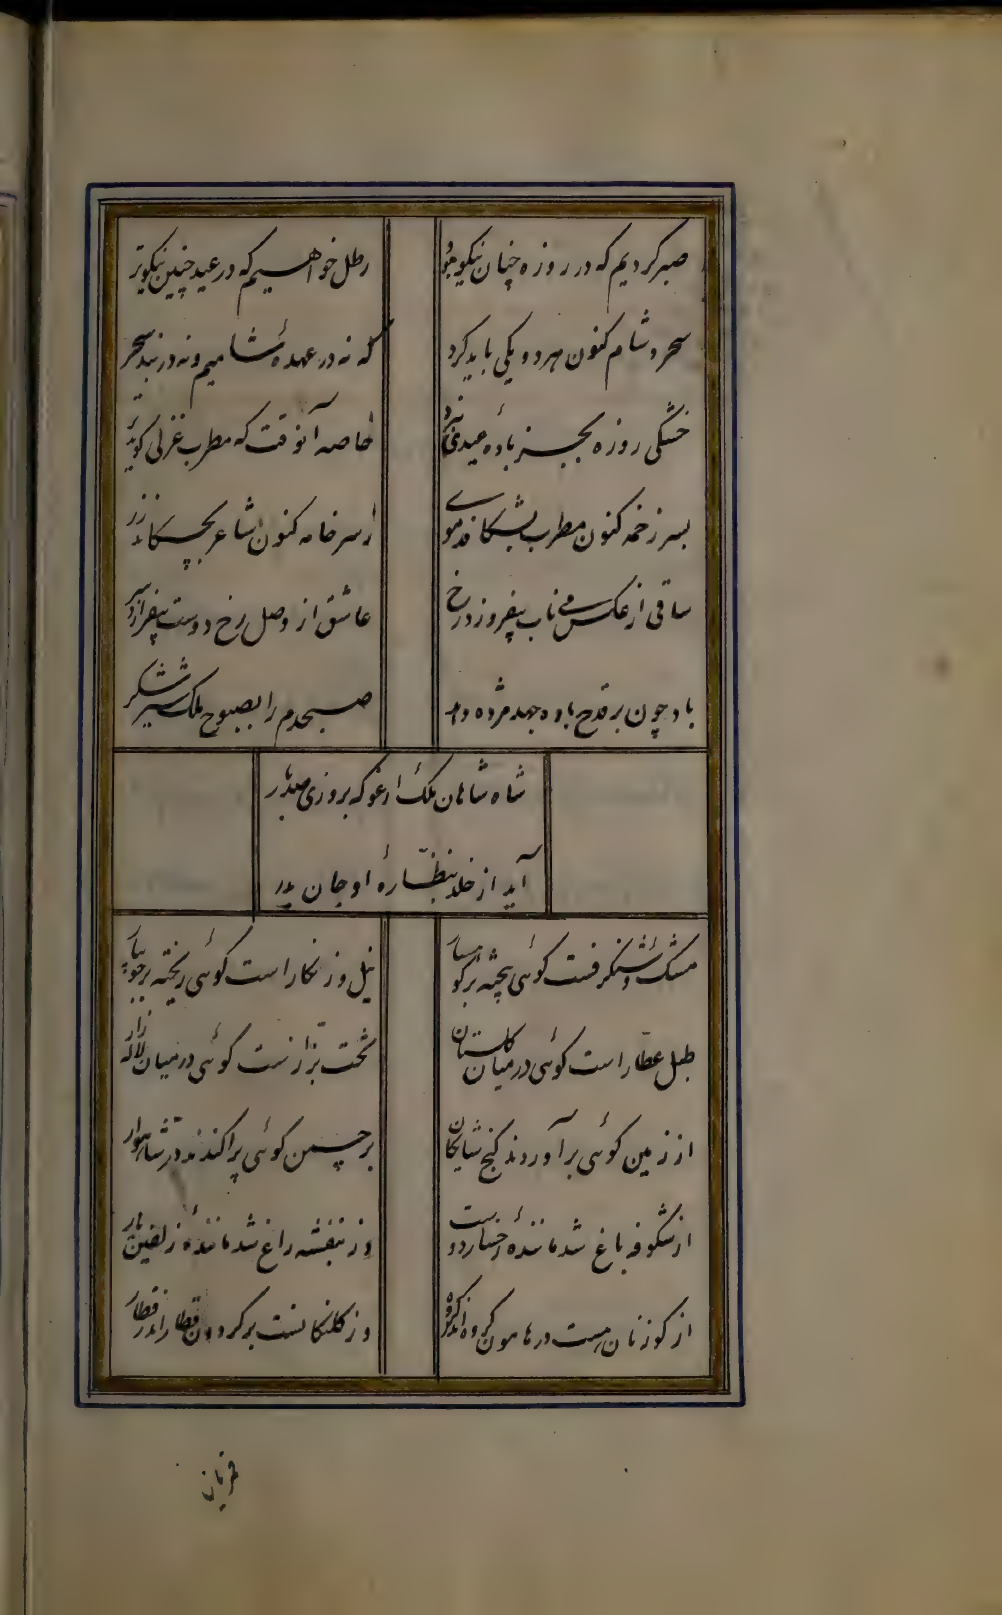 صبر کردیم که در روزه چنان نیکو بود رطل خواهیم که در عید چنین نیکوتر
سحر و شام کنون هر دو یکی باید کرد که نه در عهده شامیم و نه در بند سحر
خشکی روزه بجز باده عیدی نبرد خاصه آنوقت که مطرب غزلی گوید تر
بسر زخمه کنون مطرب بشکافد موی از سر خامه کنون شاعر بچکاند زر
ساقی از عکس می ناب بیفروزد رخ عاشق از وصل رخ دوست بیفرازد سر
باد چون بر قدح باده جهد مژده دهد صبحدم را بصبوح ملک شیر شکر
شاه شاهان ملک ارغو که بروزی صد بار
آید از خلد بنظّارهٔ او جان پدر
مشک و شنگرفست گوئی بیخته بر کوهسار نیل و زنگار است گوئی ریخته بر جویبار
طبل عطّار است گوئی در میان گلستان تخت بزّازست گوئی در میان لاله زار
از زمین گوئی برآوردند گنج شایگان بر چمن گوئی پراکندند درّ شاهوار
از شکوفه باغ شد مانندهٔ رخسار دوست وز بنفشه راغ شد مانندهٔ زلفین یار
از گوزنان هست در هامون گروه اندر گروه وز کلنگانست بر گردون قطار اندر قطار